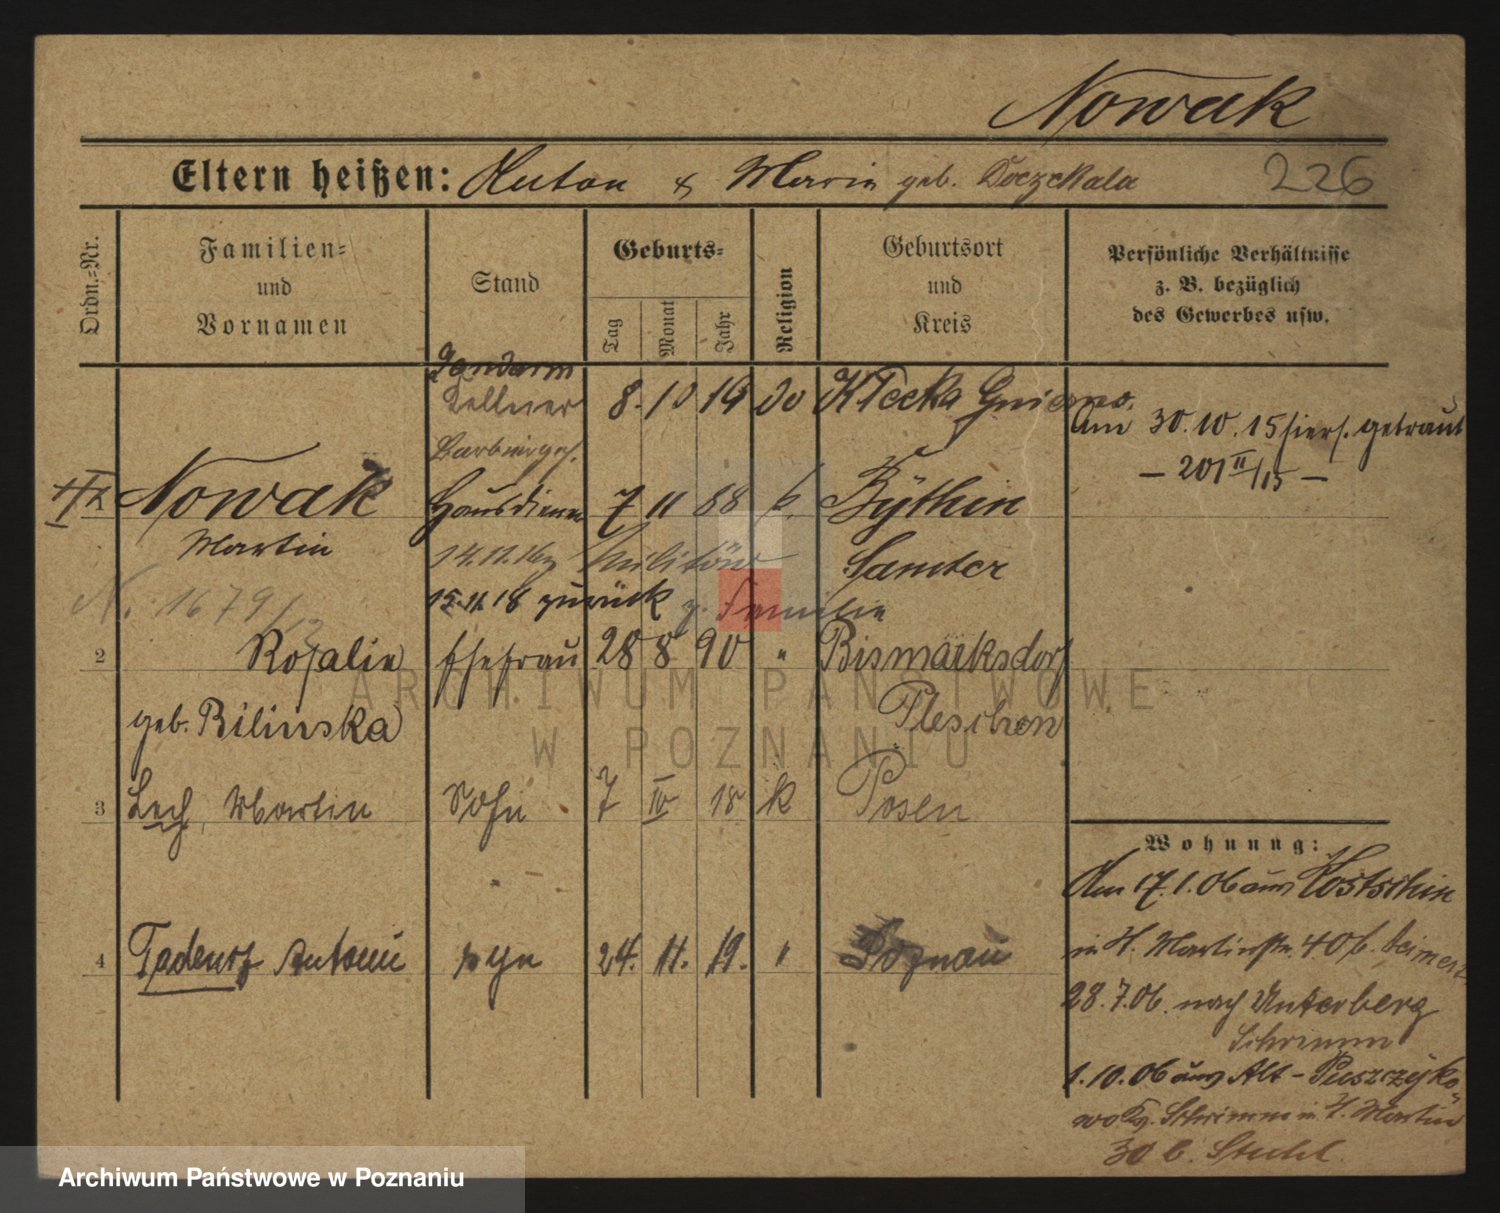 Nowak
Eltern heißen: Anton & Marie geb. 226
Ordn.-Nr.
Familien-
und
Vornamen
Stand
Geburts-
Tag
Monat
Jahr
Religion
Geburtsort
und
Kreis
Persönliche Verhältnisse
z. B. bezüglich
des Gewerbes usw.
Kellner 8. 10 19 Klecka
Am 30.10.15 hiers. getraut
– 201 II/15 –
Nowak Hausdiener 7 11 88 k. Bythin
Martin 14.11.16 z Militär Samter
N. 1679/13 15.11.18 zurück z. Familie
2 Rosalie Ehefrau 28 8 90 " Bismarksdorf
geb. Bilinska Pleschen
3 Lech, Martin Sohn 7 IV 18 k Posen
Wohnung:
Am 17.1.06 aus
4 Antoni syn 24. 11. 19. " Poznań
in St. Martinstr. 40 b.
28.7.06. nach Unterberg
Schrimm
1.10.06 aus Alt-Puszczyko
Schrimm in St. Martin
30 b.
ARCHIWUM PAŃSTWOWE
W POZNANIU
Archiwum Państwowe w Poznaniu